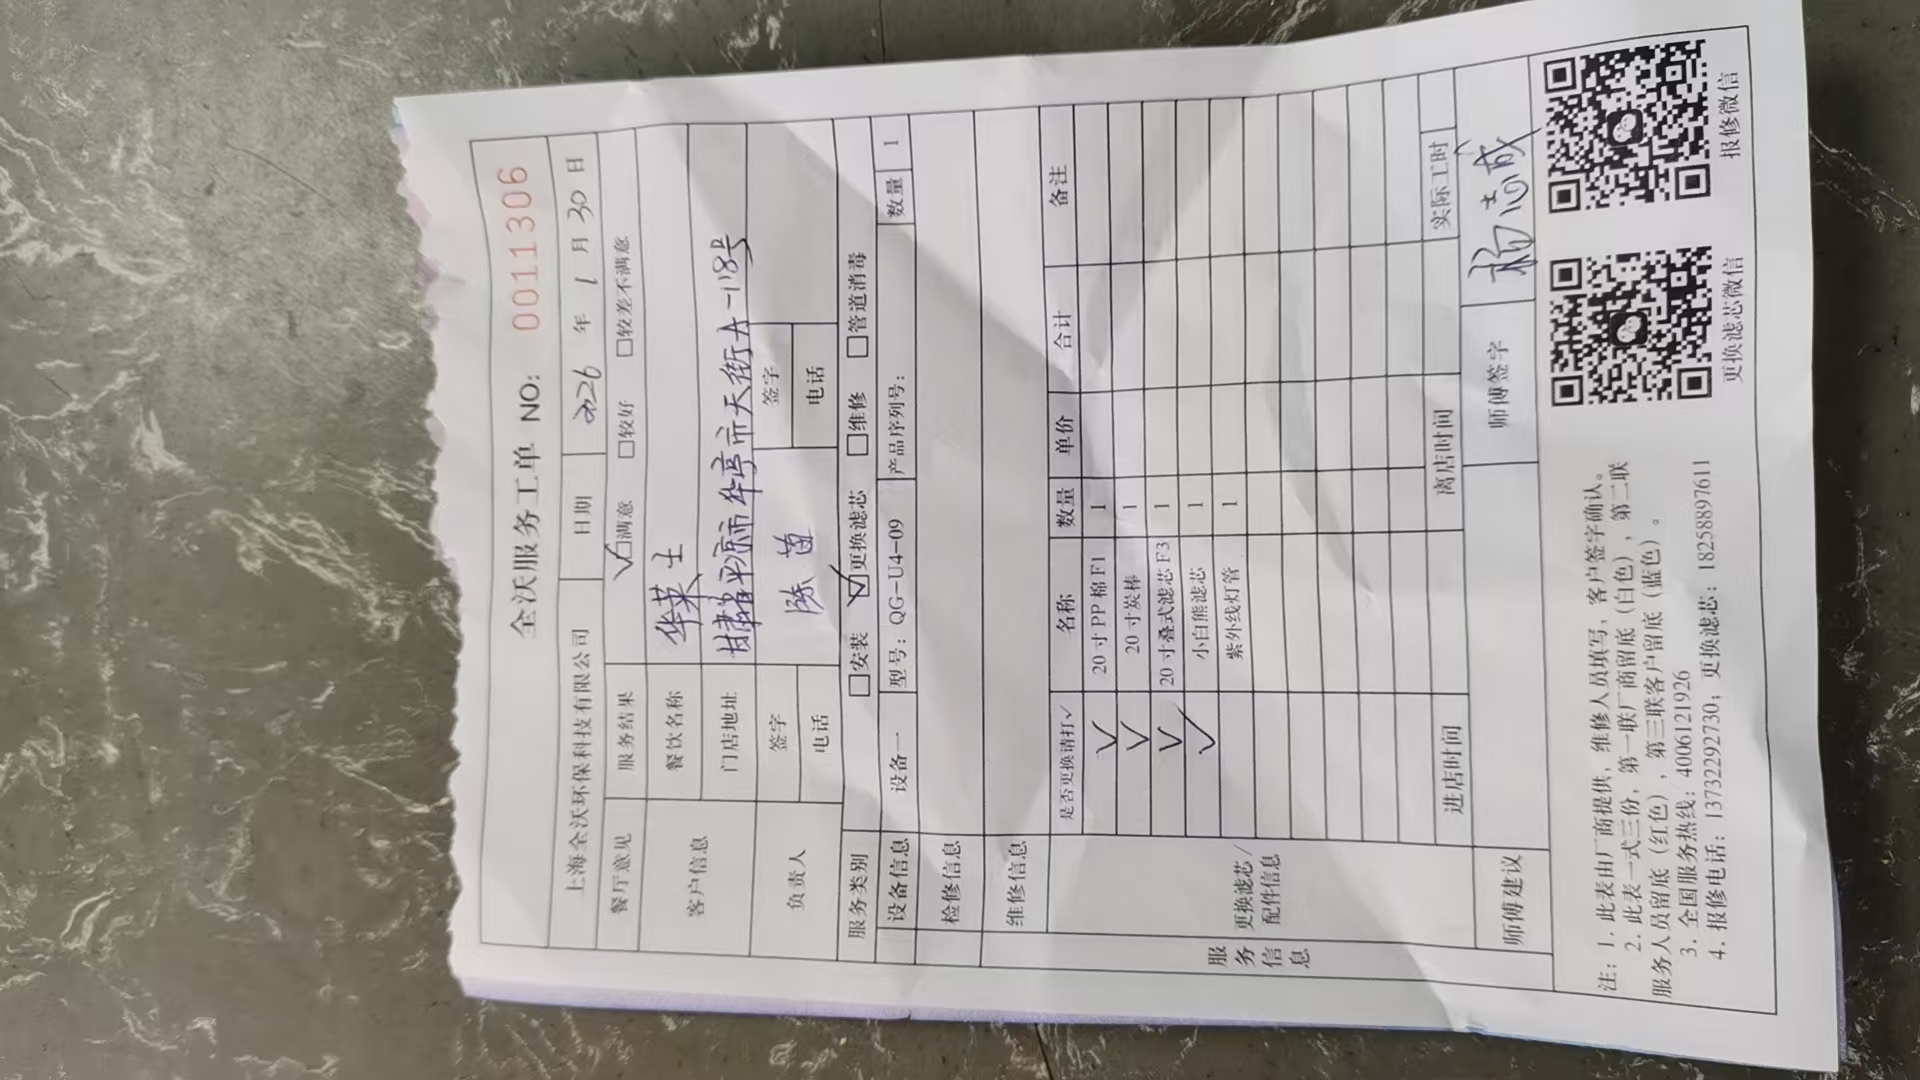 全沃服务工单 NO: 0011306
上海全沃环保科技有限公司 日期 2026 年 1 月 30 日
餐厅意见 服务结果 ☑满意 □较好 □较差不满意
客户信息 餐饮名称 华莱士
门店地址 甘肃省平凉市华亭市天街A-118号
负责人 签字 陈苗 签字
电话 电话
服务类别 □安装 ☑更换滤芯 □维修 □管道消毒
设备信息 设备一 型号：QG-U4-09 产品序列号： 数量 1
检修信息
维修信息
服务信息
更换滤芯/配件信息
是否更换请打√ 名称 数量 单价 合计 备注
√ 20寸PP棉F1 1
√ 20寸炭棒 1
√ 20寸叠式滤芯F3 1
√ 小白熊滤芯 1
紫外线灯管 1
进店时间 离店时间 实际工时
师傅建议 师傅签字 杨志成
注：1. 此表由厂商提供，维修人员填写，客户签字确认。
2. 此表一式三份，第一联厂商留底（白色），第二联
服务人员留底（红色），第三联客户留底（蓝色）。
3. 全国服务热线：4006121926
4. 报修电话：13732292730；更换滤芯：18258897611
更换滤芯微信 报修微信